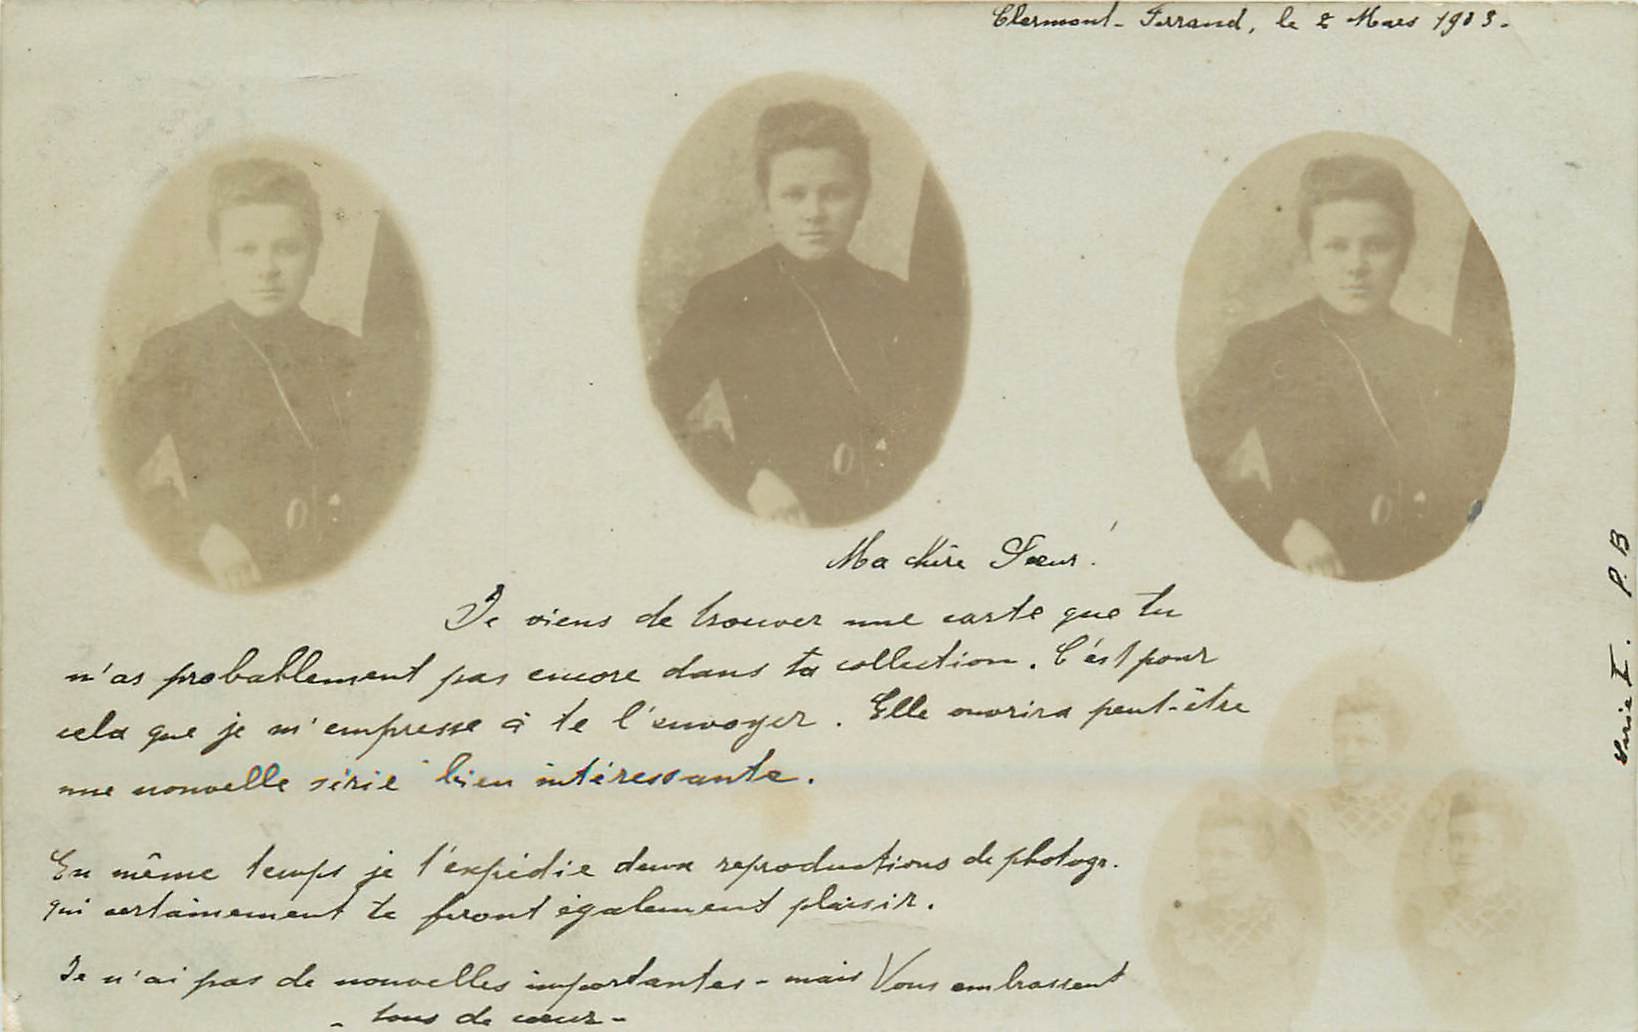 Clermont-Ferrand, le 2 Mars 1903.
Ma chère Sœur!
Je viens de trouver une carte que tu
n'as probablement pas encore dans ta collection. C'est pour
cela que je m'empresse à te l'envoyer. Elle ouvrira peut-être
une nouvelle série bien intéressante.
En même temps je t'expédie deux reproductions de photogr.
qui certainement te feront également plaisir.
Je n'ai pas de nouvelles importantes - mais Vous embrassent
- tous de cœur -
Série I. P. B